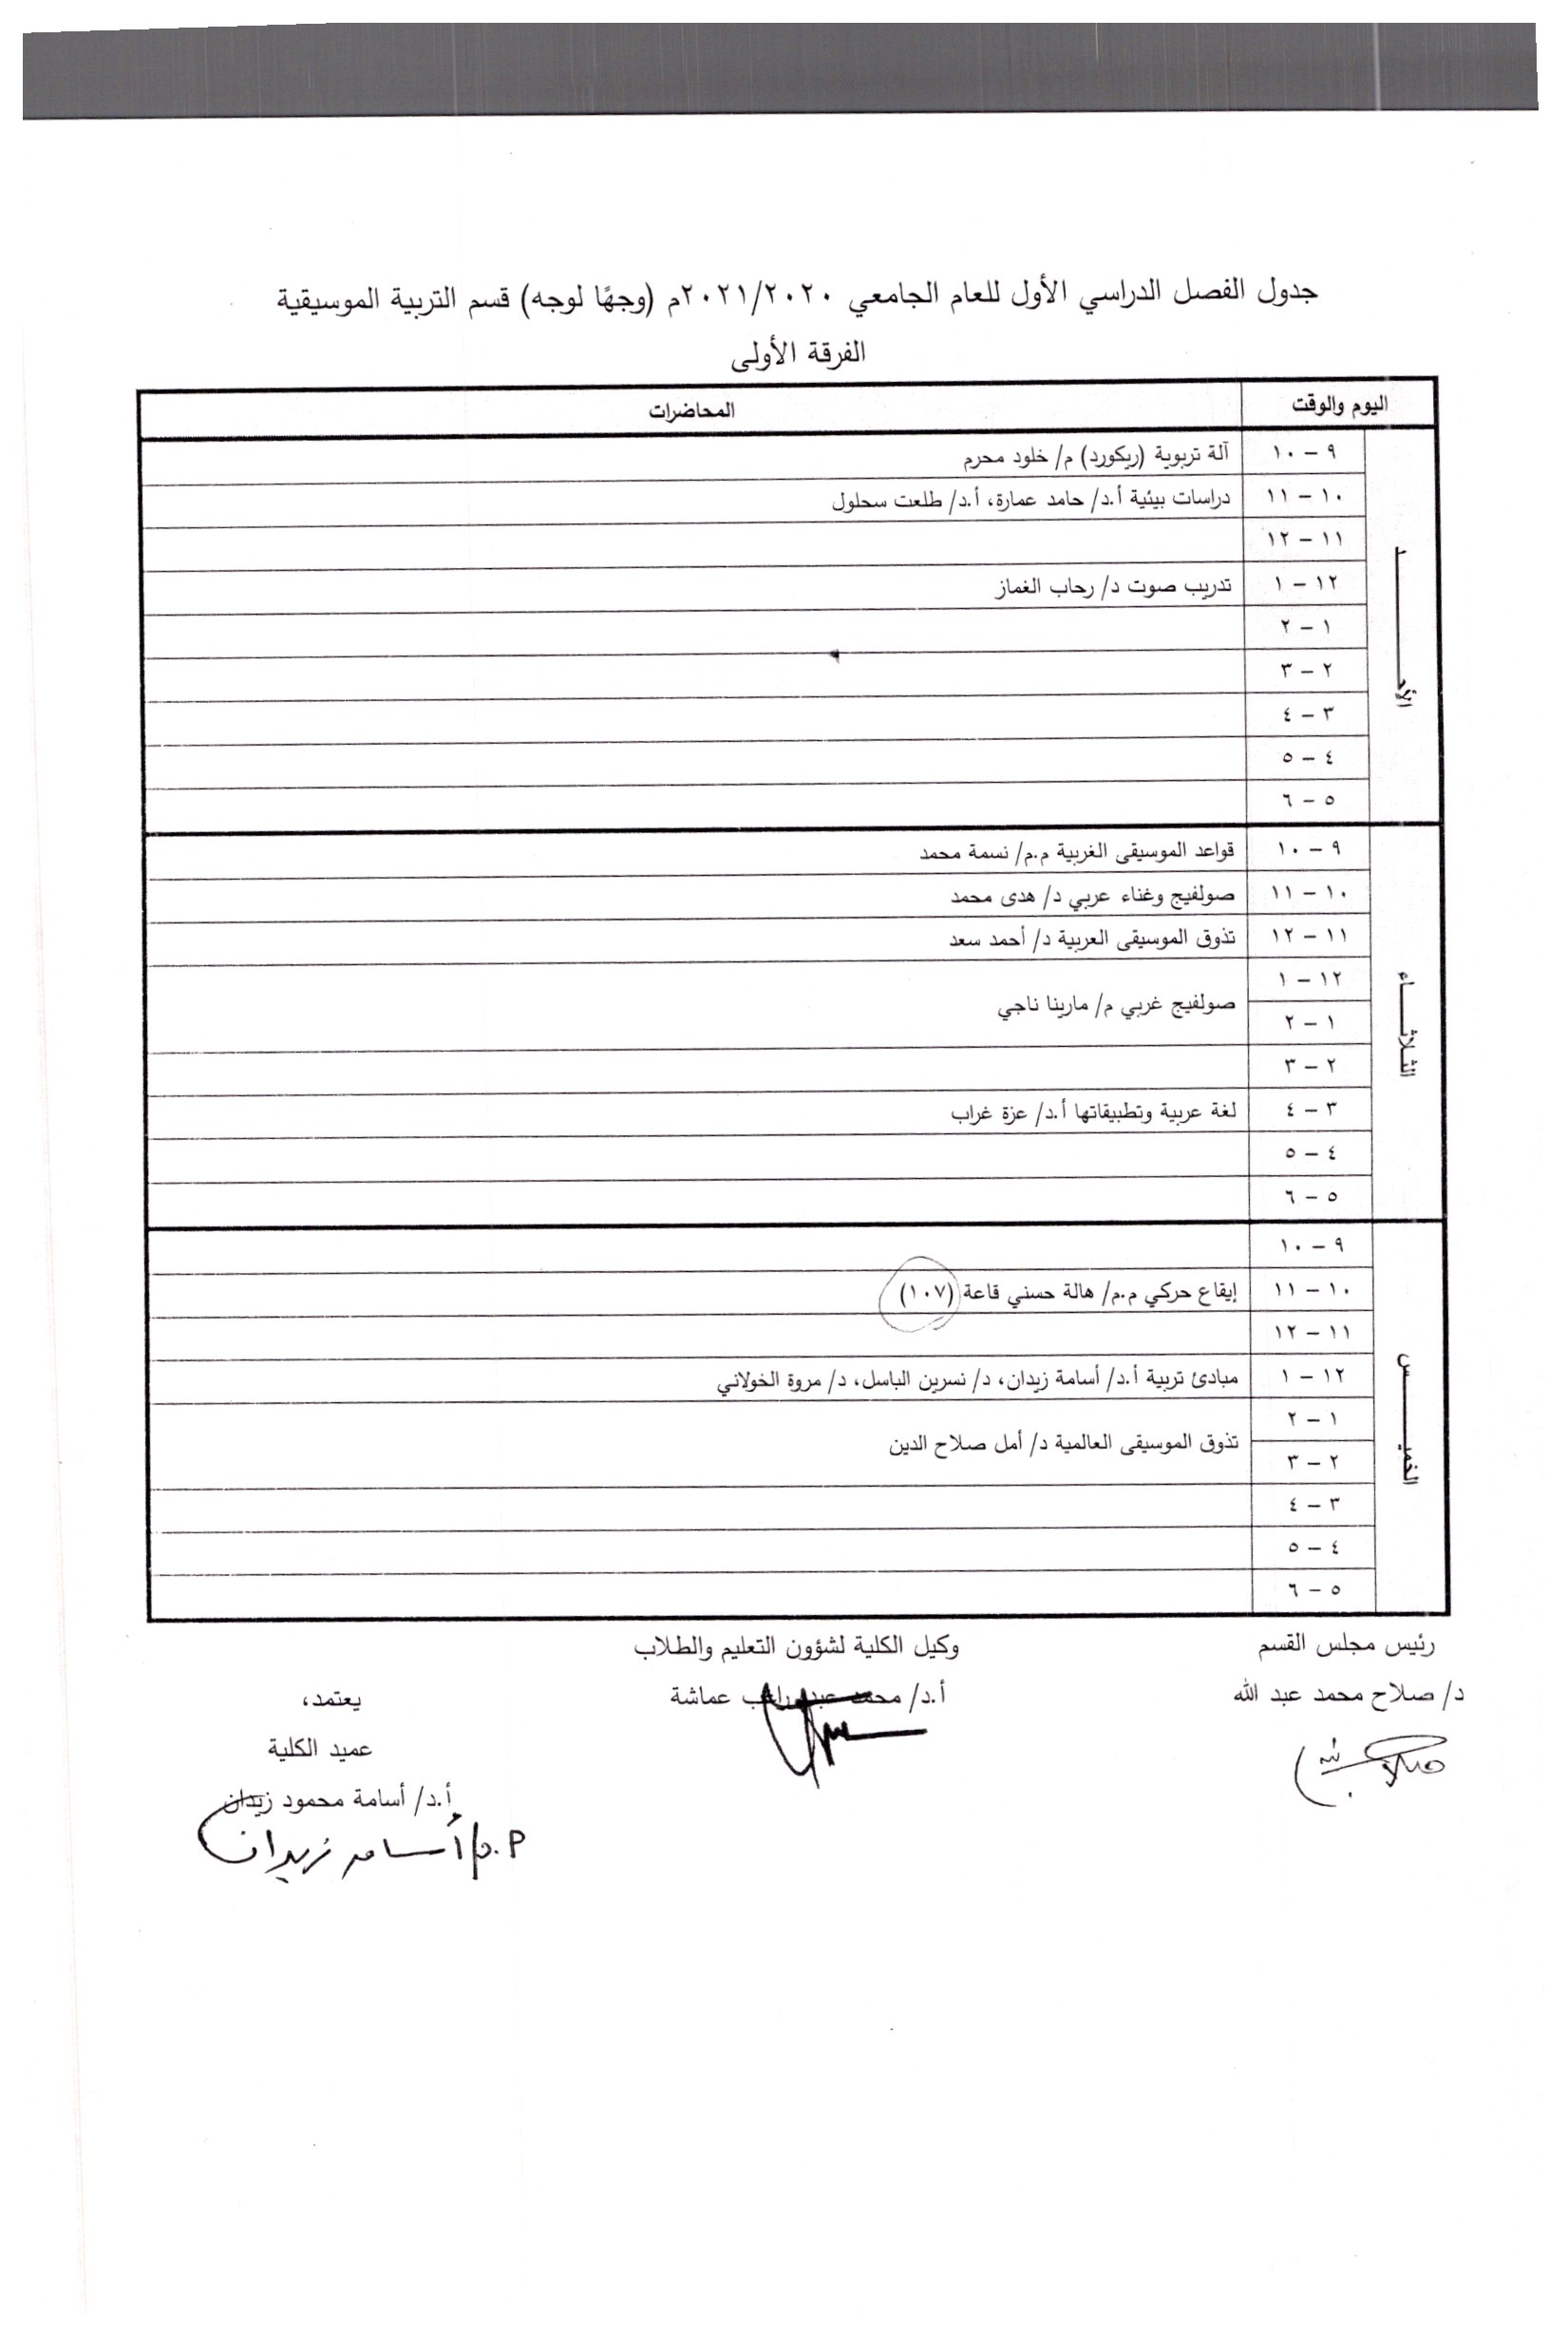 جدول الفصل الدراسي الأول للعام الجامعي ٢٠٢١/٢٠٢٠م (وجهًا لوجه) قسم التربية الموسيقية
الفرقة الأولى
اليوم والوقت المحاضرات
الأحد
٩ – ١٠ آلة تربوية (ريكورد) م/ خلود محرم
١٠ – ١١ دراسات بيئية أ.د/ حامد عمارة، أ.د/ طلعت سحلول
١١ – ١٢
١٢ – ١ تدريب صوت د/ رحاب الغماز
١ – ٢
٢ – ٣
٣ – ٤
٤ – ٥
٥ – ٦
الثلاثاء
٩ – ١٠ قواعد الموسيقى الغربية م.م/ نسمة محمد
١٠ – ١١ صولفيج وغناء عربي د/ هدى محمد
١١ – ١٢ تذوق الموسيقى العربية د/ أحمد سعد
١٢ – ١ صولفيج غربي م/ مارينا ناجي
١ – ٢
٢ – ٣
٣ – ٤ لغة عربية وتطبيقاتها أ.د/ عزة غراب
٤ – ٥
٥ – ٦
الخميس
٩ – ١٠
١٠ – ١١ إيقاع حركي م.م/ هالة حسني قاعة (١٠٧)
١١ – ١٢
١٢ – ١ مبادئ تربية أ.د/ أسامة زيدان، د/ نسرين الباسل، د/ مروة الخولاني
١ – ٢ تذوق الموسيقى العالمية د/ أمل صلاح الدين
٢ – ٣
٣ – ٤
٤ – ٥
٥ – ٦
رئيس مجلس القسم وكيل الكلية لشؤون التعليم والطلاب
د/ صلاح محمد عبد الله أ.د/ محمد عبده راغب عماشة يعتمد،
عميد الكلية
أ.د/ أسامة محمود زيدان
أ.د/ أسامة زيدان